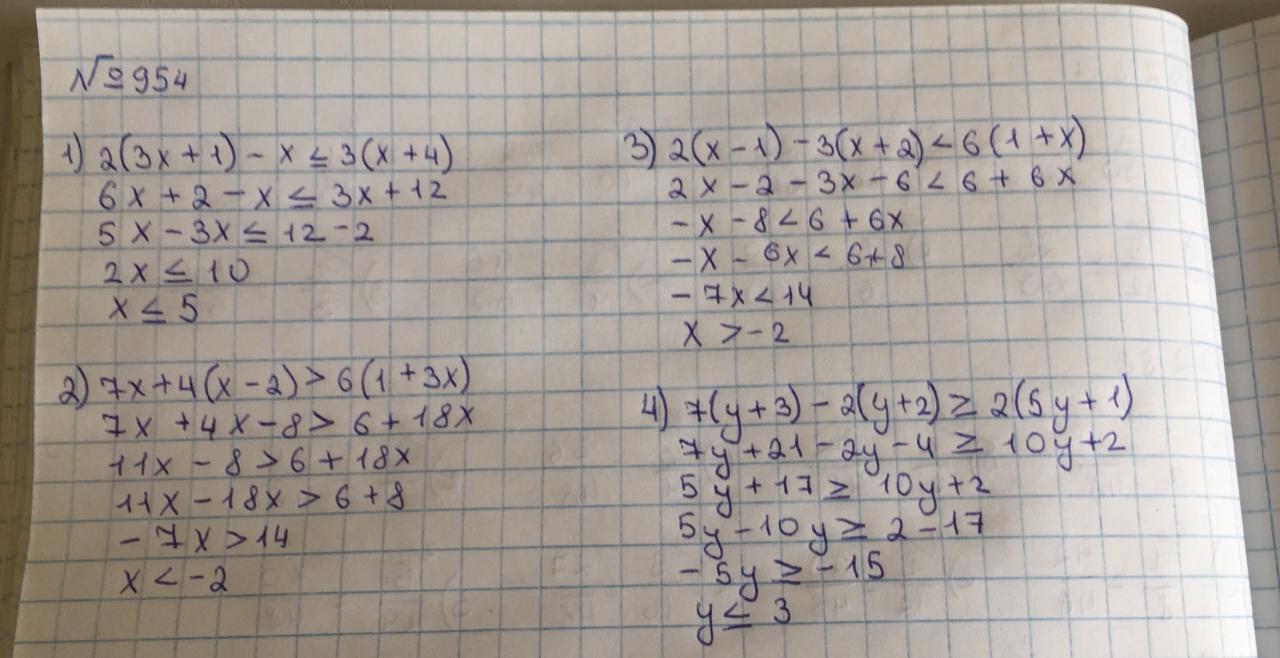 №954
1) 2(3x+1) - x ≤ 3(x+4)
6x + 2 - x ≤ 3x + 12
5x - 3x ≤ 12 - 2
2x ≤ 10
x ≤ 5
2) 7x + 4(x-2) > 6(1+3x)
7x + 4x - 8 > 6 + 18x
11x - 8 > 6 + 18x
11x - 18x > 6 + 8
- 7x > 14
x < -2
3) 2(x-1) - 3(x+2) < 6(1+x)
2x - 2 - 3x - 6 < 6 + 6x
- x - 8 < 6 + 6x
- x - 6x < 6 + 8
- 7x < 14
x > -2
4) 7(y+3) - 2(y+2) ≥ 2(5y+1)
7y + 21 - 2y - 4 ≥ 10y + 2
5y + 17 ≥ 10y + 2
5y - 10y ≥ 2 - 17
- 5y ≥ -15
y ≤ 3